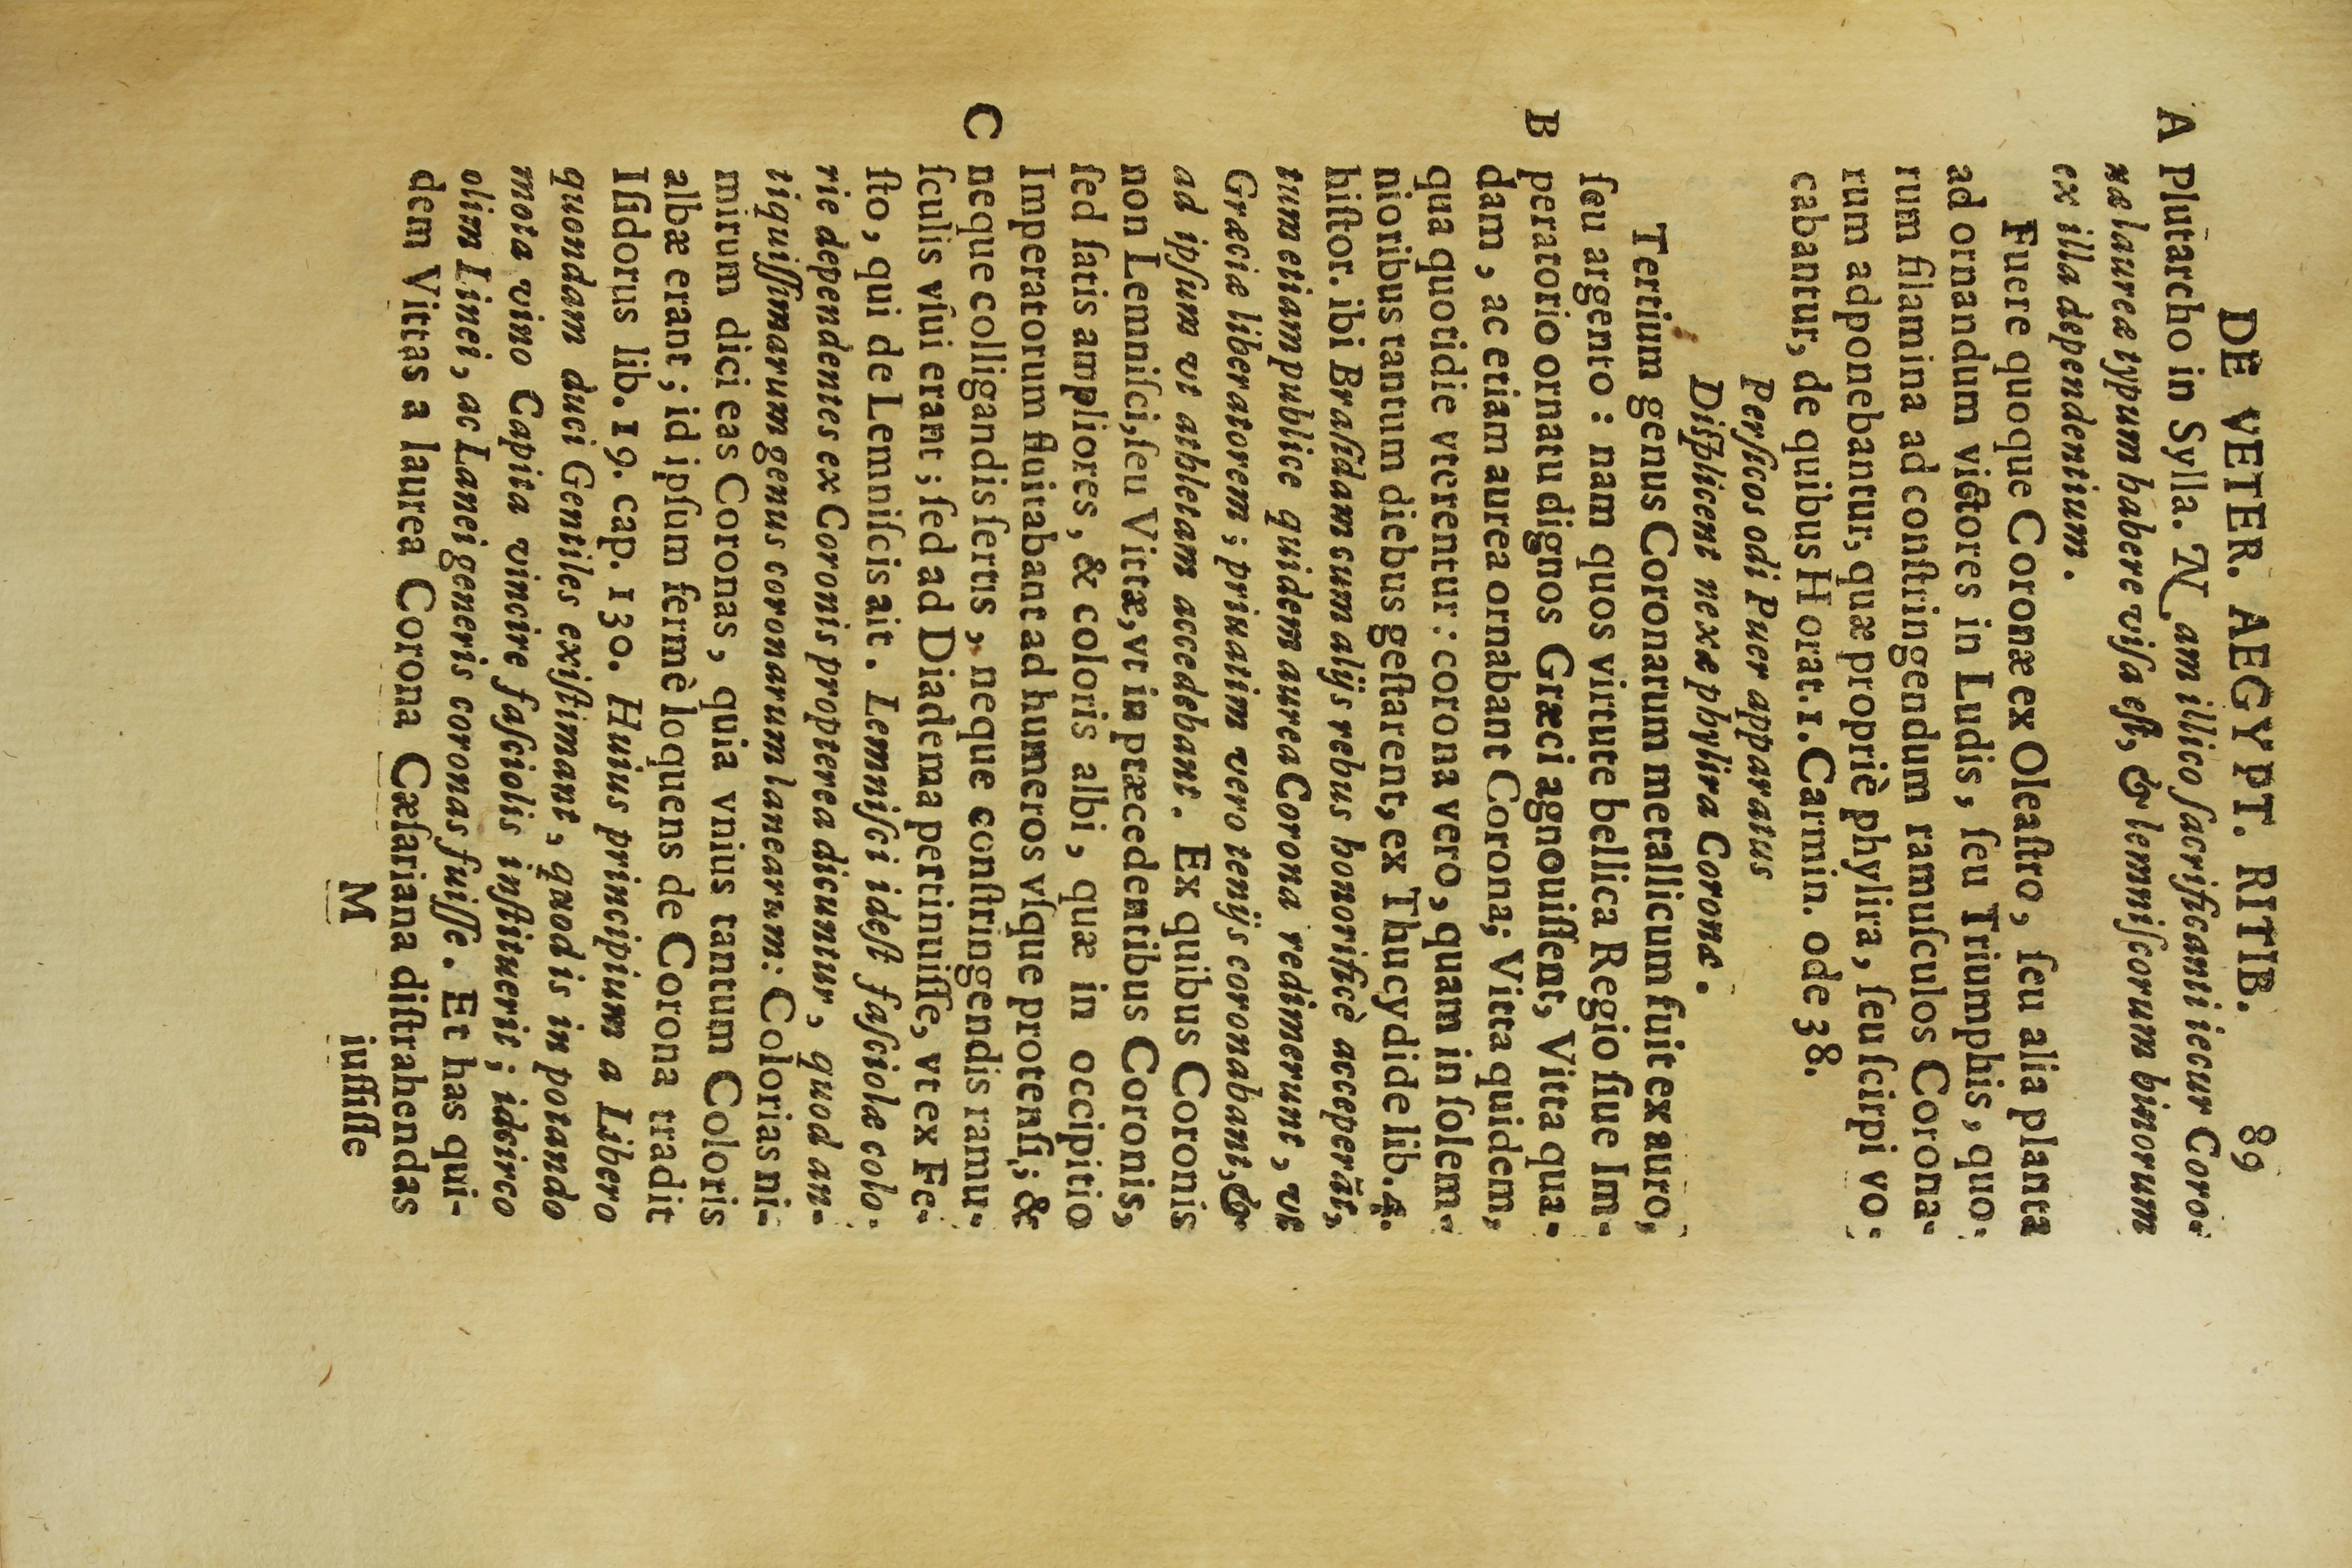 DE VETER. AEGYPT. RITIB. 89
A Plutarcho in Sylla. Nam illico ſacrificanti iecur Coro-
næ laureæ typum habere viſa eſt, & lemniſcorum binorum
ex illa dependentium.
Fuere quoque Coronæ ex Oleaſtro, ſeu alia planta
ad ornandum victores in Ludis, ſeu Triumphis, quo-
rum filamina ad conſtringendum ramuſculos Corona-
rum adponebantur, quæ propriè phylira, ſeu ſcirpi vo-
cabantur, de quibus Horat. 1. Carmin. ode 38.
Perſicos odi Puer apparatus
Diſplicent nexæ phylira Coronæ.
Tertium genus Coronarum metallicum fuit ex auro,
ſeu argento: nam quos virtute bellica Regio ſiue Im-
B peratorio ornatu dignos Græci agnouiſſent, Vitta qua-
dam, ac etiam aurea ornabant Corona; Vitta quidem,
qua quotidie vterentur: corona vero, quam in ſolem-
nioribus tantum diebus geſtarent, ex Thucydide lib. 4.
hiſtor. ibi Braſidam cum alijs rebus honorificè acceperāt,
tum etiam publice quidem aurea Corona redimerunt, vt
Græciæ liberatorem; priuatim vero tenijs coronabant, &
ad ipſum vt athletam accedebant. Ex quibus Coronis
non Lemniſci, ſeu Vittæ, vt in præcedentibus Coronis,
ſed ſatis ampliores, & coloris albi, quæ in occipitio
Imperatorum fluitabant ad humeros vſque protenſi; &
C neque colligandis ſertis, neque conſtringendis ramu-
ſculis vſui erant; ſed ad Diadema pertinuiſſe, vt ex Fe-
ſto, qui de Lemniſcis ait. Lemniſci ideſt faſciolæ colo-
rie dependentes ex Coronis propterea dicuntur, quod an-
tiquiſſimarum genus coronarum lanearum: Colorias ni-
mirum dici eas Coronas, quia vnius tantum Coloris
albæ erant; id ipſum fermè loquens de Corona tradit
Iſidorus lib. 19. cap. 130. Huius principium a Libero
quondam duci Gentiles exiſtimant, quod is in potando
mota vino Capita vincire faſciolis inſtituerit; idcirco
olim Linei, ac Lanei generis coronas fuiſſe. Et has qui-
dem Vittas a laurea Corona Cæſariana diſtrahendas
M iuſſiſſe